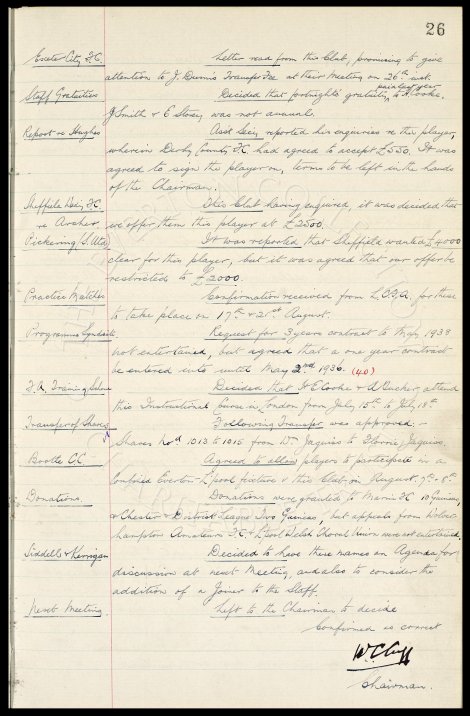 26
Exeter City F.C. Letter read from this Club, promising to give
attention to J. Dunn's Transfer Fee at their Meeting on 26th inst.
Staff Gratuities Decided that fortnight's gratuity, to H. Cooke,
paid last year
J. Smith & E. Storey was not annual.
Report re Hughes Asst Secy reported his enquiries re this player,
wherein Derby County F.C. had agreed to accept £550. It was
agreed to sign the player on, terms to be left in the hands
of the Chairman.
Sheffield Wed. F.C. This Club having enquired, it was decided that
re Archer we offer them this player at £2500.
Pickering S. Utd. It was reported that Sheffield wanted £4000
clear for this player, but it was agreed that our offer be
restricted to £2000.
Practice Matches Confirmation received from L.C.F.A. for these
to take place on 17th & 21st August.
Programme Syndicate Request for 3 years contract to May 1938
not entertained, but agreed that a one year contract
be entered into until May 2nd 1936. (40)
F.A. Training Scheme Decided that H. E. Cooke & A. Rucker attend
this Instructional Course in London from July 15th to July 18th.
Transfer of Shares Following Transfer was approved:-
Shares Nod 1013 to 1015 from Wm Jaquiss to Florrie Jaquiss.
Bootle C.C. Agreed to allow players to participate in a
Combined Everton - L'pool fixture v this Club on August 7th - 8th.
Donations. Donations were granted to Marine F.C. 10 Guineas,
& Chester & District League Two Guineas, but appeals from Wolver-
hampton Amateurs F.C. & L'pool Welsh Choral Union were not entertained.
Liddell & Kerrigan Decided to have these names on Agenda for
discussion at next Meeting, and also to consider the
addition of a Joiner to the Staff.
Next Meeting Left to the Chairman to decide
Confirmed as correct
W. C. Cuff
Chairman.